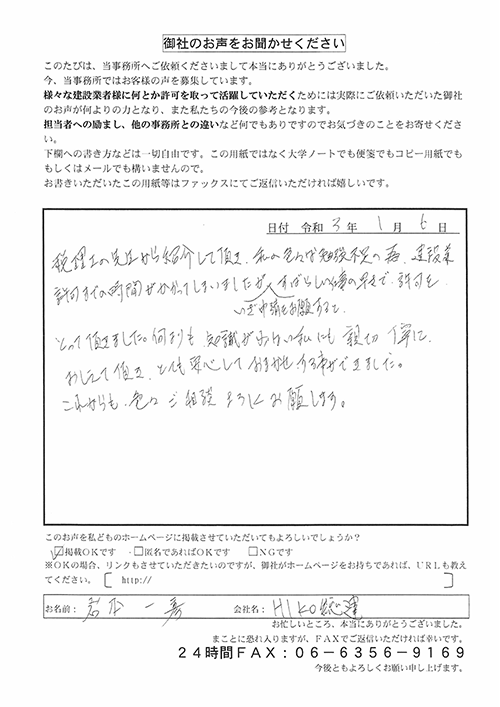 御社のお声をお聞かせください
このたびは、当事務所へご依頼くださいまして本当にありがとうございました。
今、当事務所ではお客様の声を募集しています。
様々な建設業者様に何とか許可を取って活躍していただくためには実際にご依頼いただいた御社
のお声が何よりの力となり、また私たちの今後の参考となります。
担当者への励まし、他の事務所との違いなど何でもありですのでお気づきのことをお寄せくださ
い。
下欄への書き方などは一切自由です。この用紙ではなく大学ノートでも便箋でもコピー用紙でも
もしくはメールでも構いませんので。
お書きいただいたこの用紙等はファックスにてご返信いただければ嬉しいです。
日付 令和 3 年 1 月 6 日
税理士の先生から紹介して頂き、私の色々な勉強不足の為、建設業
許可までの時間がかかってしまいましたが、すばらしい仕事の早さで、許可を
いざ申請をお願すると、
とって頂きました。何よりも 知識がない私にも 親切 丁寧に、
おしえて頂き、とても安心しておまかせする事ができました。
これからも、色々ご相談 よろしくお願します。
このお声を私どものホームページに掲載させていただいてもよろしいでしょうか?
☑掲載OKです ・□匿名であればOKです □NGです
※OKの場合、リンクもさせていただきたいのですが、御社がホームページをお持ちであれば、URLも教え
てください。〔 http:// 〕
お名前: 岩本 一 会社名: HIKO総建
お忙しいところ、本当にありがとうございました。
まことに恐れ入りますが、FAXでご返信いただければ幸いです。
24時間FAX:06-6356-9169
今後ともよろしくお願い申し上げます。